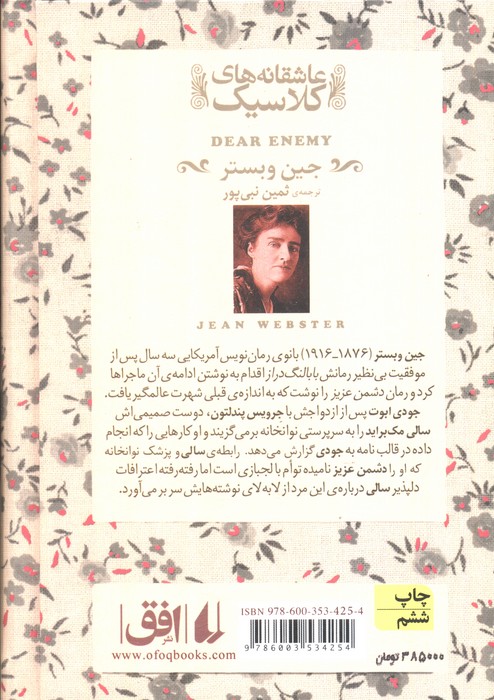 عاشقانه‌های
کلاسیک
DEAR ENEMY
جین وبستر
ترجمه‌ی ثمین نبی‌پور
JEAN WEBSTER
جین وبستر (۱۸۷۶_۱۹۱۶) بانوی رمان‌نویس آمریکایی سه سال پس از
موفقیت بی‌نظیر رمانش بابالنگ‌دراز اقدام به نوشتن ادامه‌ی آن ماجراها
کرد و رمان دشمن عزیز را نوشت که به اندازه‌ی قبلی شهرت عالمگیر یافت.
جودی ابوت پس از ازدواجش با جرویس پندلتون، دوست صمیمی‌اش
سالی مک‌براید را به سرپرستی نوانخانه برمی‌گزیند و او کارهایی را که انجام
داده در قالب نامه به جودی گزارش می‌دهد. رابطه‌ی سالی و پزشک نوانخانه
که او را دشمن عزیز نامیده توأم با لجبازی است اما رفته‌رفته اعترافات
دلپذیر سالی درباره‌ی این مرد از لابه‌لای نوشته‌هایش سر برمی‌آورد.
چاپ
ششم
ISBN 978-600-353-425-4
9 786003 534254
نشر افق
www.ofoqbooks.com
۳۸۵۰۰۰ تومان